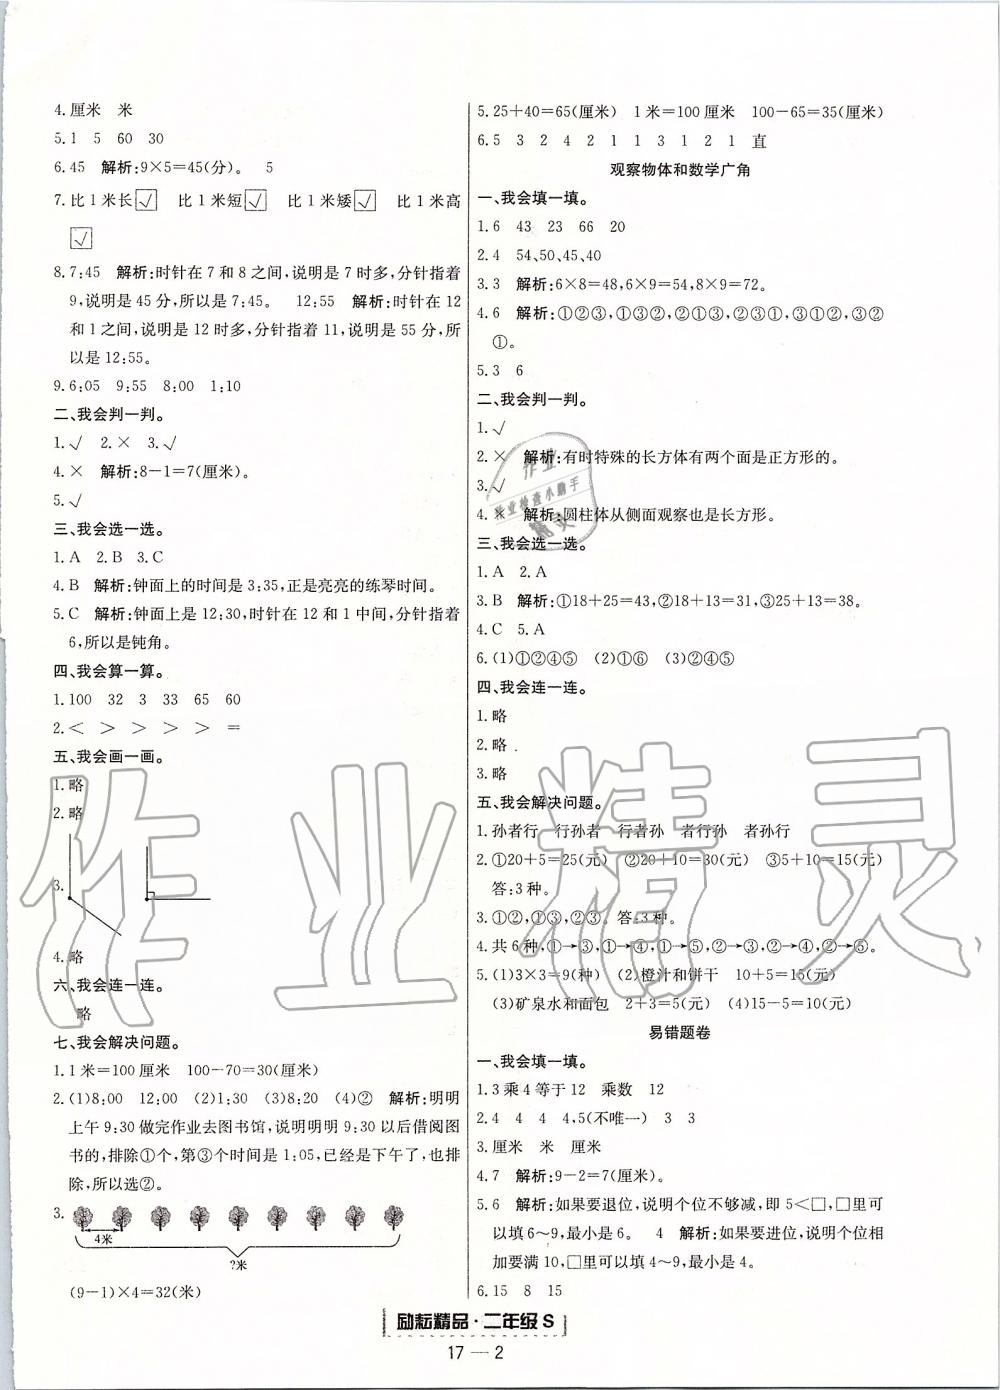 4.厘米　米
5.1　5　60　30
6.45　解析:9×5=45(分)。　5
7.比1米长☑　比1米短☑　比1米矮☑　比1米高
☑
8.7:45　解析:时针在7和8之间,说明是7时多,分针指着
9,说明是45分,所以是7:45。　12:55　解析:时针在12
和1之间,说明是12时多,分针指着11,说明是55分,所
以是12:55。
9.6:05　9:55　8:00　1:10
二、我会判一判。
1.√　2.×　3.√
4.×　解析:8-1=7(厘米)。
5.√
三、我会选一选。
1.A　2.B　3.C
4.B　解析:钟面上的时间是3:35,正是亮亮的练琴时间。
5.C　解析:钟面上是12:30,时针在12和1中间,分针指着
6,所以是钝角。
四、我会算一算。
1.100　32　3　33　65　60
2.<　>　>　>　>　=
五、我会画一画。
1.略
2.略
3.
4.略
六、我会连一连。
略
七、我会解决问题。
1.1米=100厘米　100-70=30(厘米)
2.(1)8:00　12:00　(2)1:30　(3)8:20　(4)②　解析:明明
上午9:30做完作业去图书馆,说明明明9:30以后借阅图
书的,排除①个,第③个时间是1:05,已经是下午了,也排
除,所以选②。
3.
4米
?米
(9-1)×4=32(米)
5.25+40=65(厘米)　1米=100厘米　100-65=35(厘米)
6.5　3　2　4　2　1　1　3　1　2　1　直
观察物体和数学广角
一、我会填一填。
1.6　43　23　66　20
2.4　54、50、45、40
3.3　解析:6×8=48,6×9=54,8×9=72。
4.6　解析:①②③,①③②,②①③,②③①,③①②,③②
①。
5.3　6
二、我会判一判。
1.√
2.×　解析:有时特殊的长方体有两个面是正方形的。
3.√
4.×　解析:圆柱体从侧面观察也是长方形。
三、我会选一选。
1.A　2.A
3.B　解析:①18+25=43,②18+13=31,③25+13=38。
4.C　5.A
6.(1)①②④⑤　(2)①⑥　(3)②④⑤
四、我会连一连。
1.略
2.略
3.略
五、我会解决问题。
1.孙者行　行孙者　行者孙　者行孙　者孙行
2.①20+5=25(元)　②20+10=30(元)　③5+10=15(元)
答:3种。
3.①②,①③,②③。答:3种。
4.共6种,①→③,①→④,①→⑤,②→③,②→④,②→⑤。
5.(1)3×3=9(种)　(2)橙汁和饼干　10+5=15(元)
(3)矿泉水和面包　2+3=5(元)　(4)15-5=10(元)
易错题卷
一、我会填一填。
1.3乘4等于12　乘数　12
2.4　4　4　4,5(不唯一)　3　3
3.厘米　米　厘米
4.7　解析:9-2=7(厘米)。
5.6　解析:如果要退位,说明个位不够减,即5<□,□里可
以填6~9,最小是6。　4　解析:如果要进位,说明个位相
加要满10,□里可以填4~9,最小是4。
6.15　8　15
励耘精品·二年级S
17 — 2
作业精灵
作业
作业检查小助手
精灵